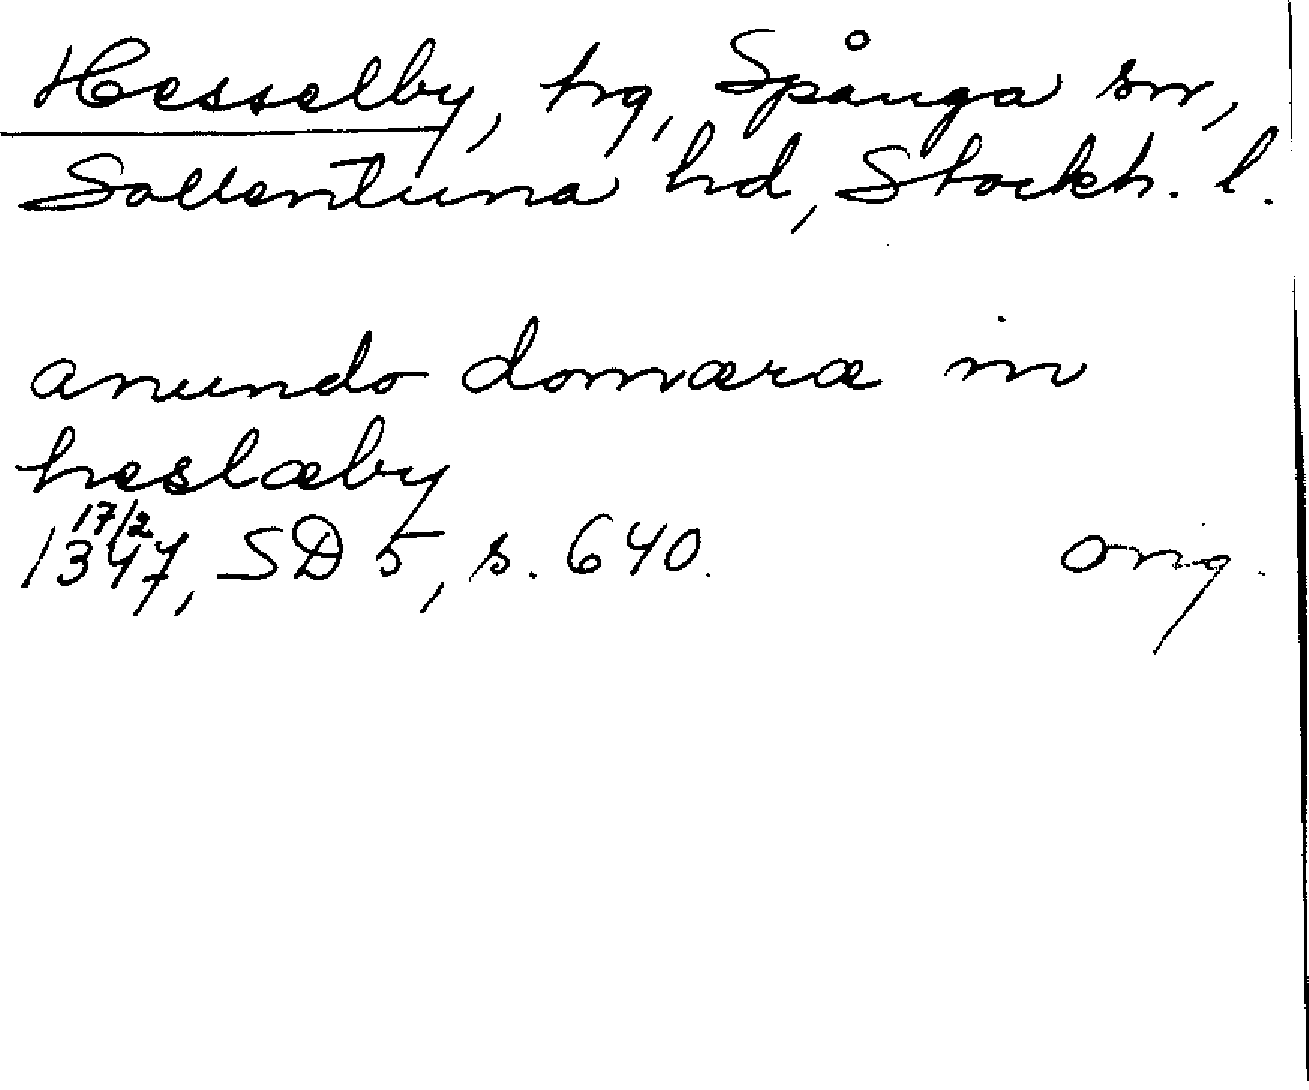 Hesselby, hg, Spånga sn,
Sollentuna hd, Stockh. l.
anundo domæræ in
heslæby
17/2
1347, SD 5, s. 640. Orig.